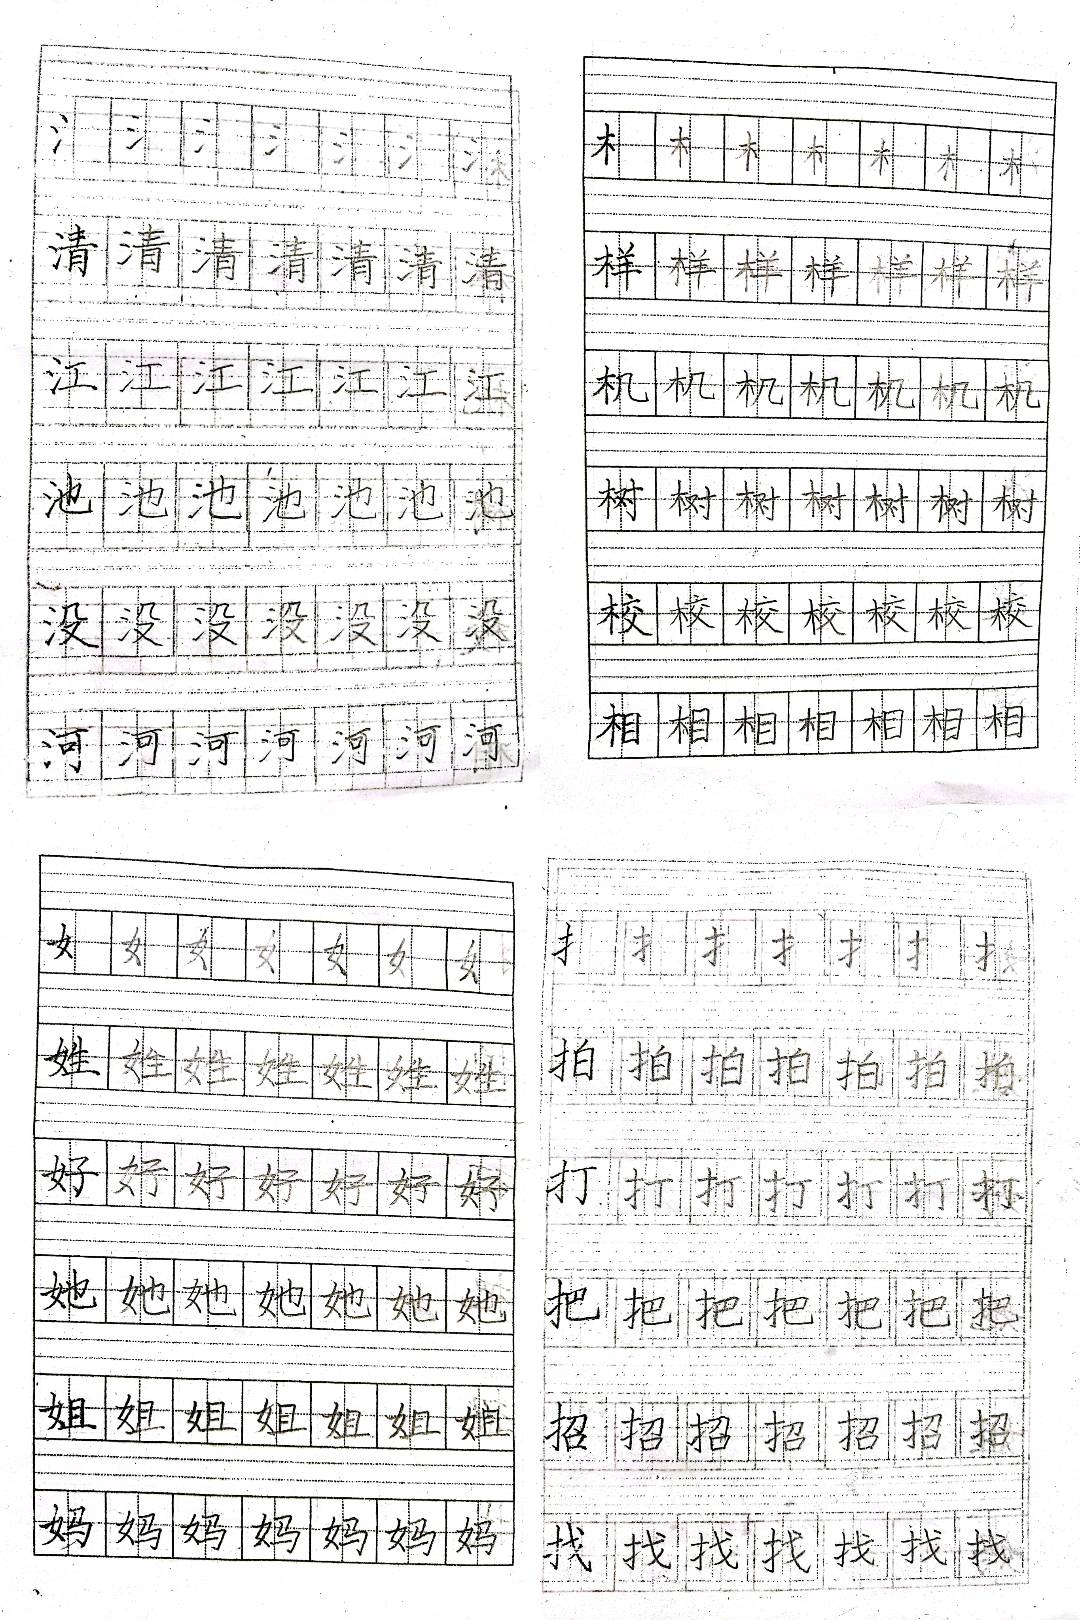 氵氵氵氵氵氵氵
清清清清清清清
江江江江江江江
池池池池池池池
没没没没没没没
河河河河河河河
木木木木木木木
样样样样样样样
机机机机机机机
树树树树树树树
校校校校校校校
相相相相相相相
女女女女女女女
姓姓姓姓姓姓姓
好好好好好好好
她她她她她她她
姐姐姐姐姐姐姐
妈妈妈妈妈妈妈
扌扌扌扌扌扌扌
拍拍拍拍拍拍拍
打打打打打打打
把把把把把把把
招招招招招招招
找找找找找找找